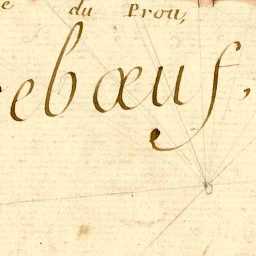 e du Prou,
ebœuf,